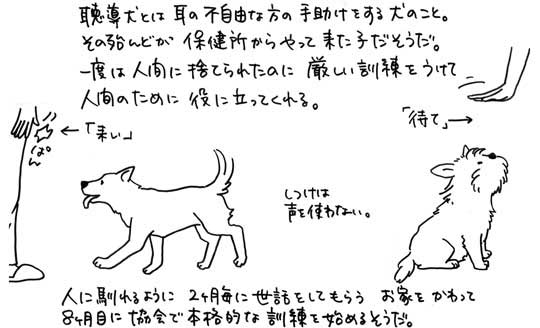 聴導犬とは 耳の不自由な方の手助けをする犬のこと。
その殆んどが 保健所からやって来た子だそうだ。
一度は人間に捨てられたのに 厳しい訓練をうけて
人間のために 役に立ってくれる。
「来い」
ぱん
「待て」
しつけは
声を使わない。
人に馴れるように 2ヶ月毎に世話をしてもらう お家をかわって
8ヶ月目に協会で本格的な訓練を始めるそうだ。